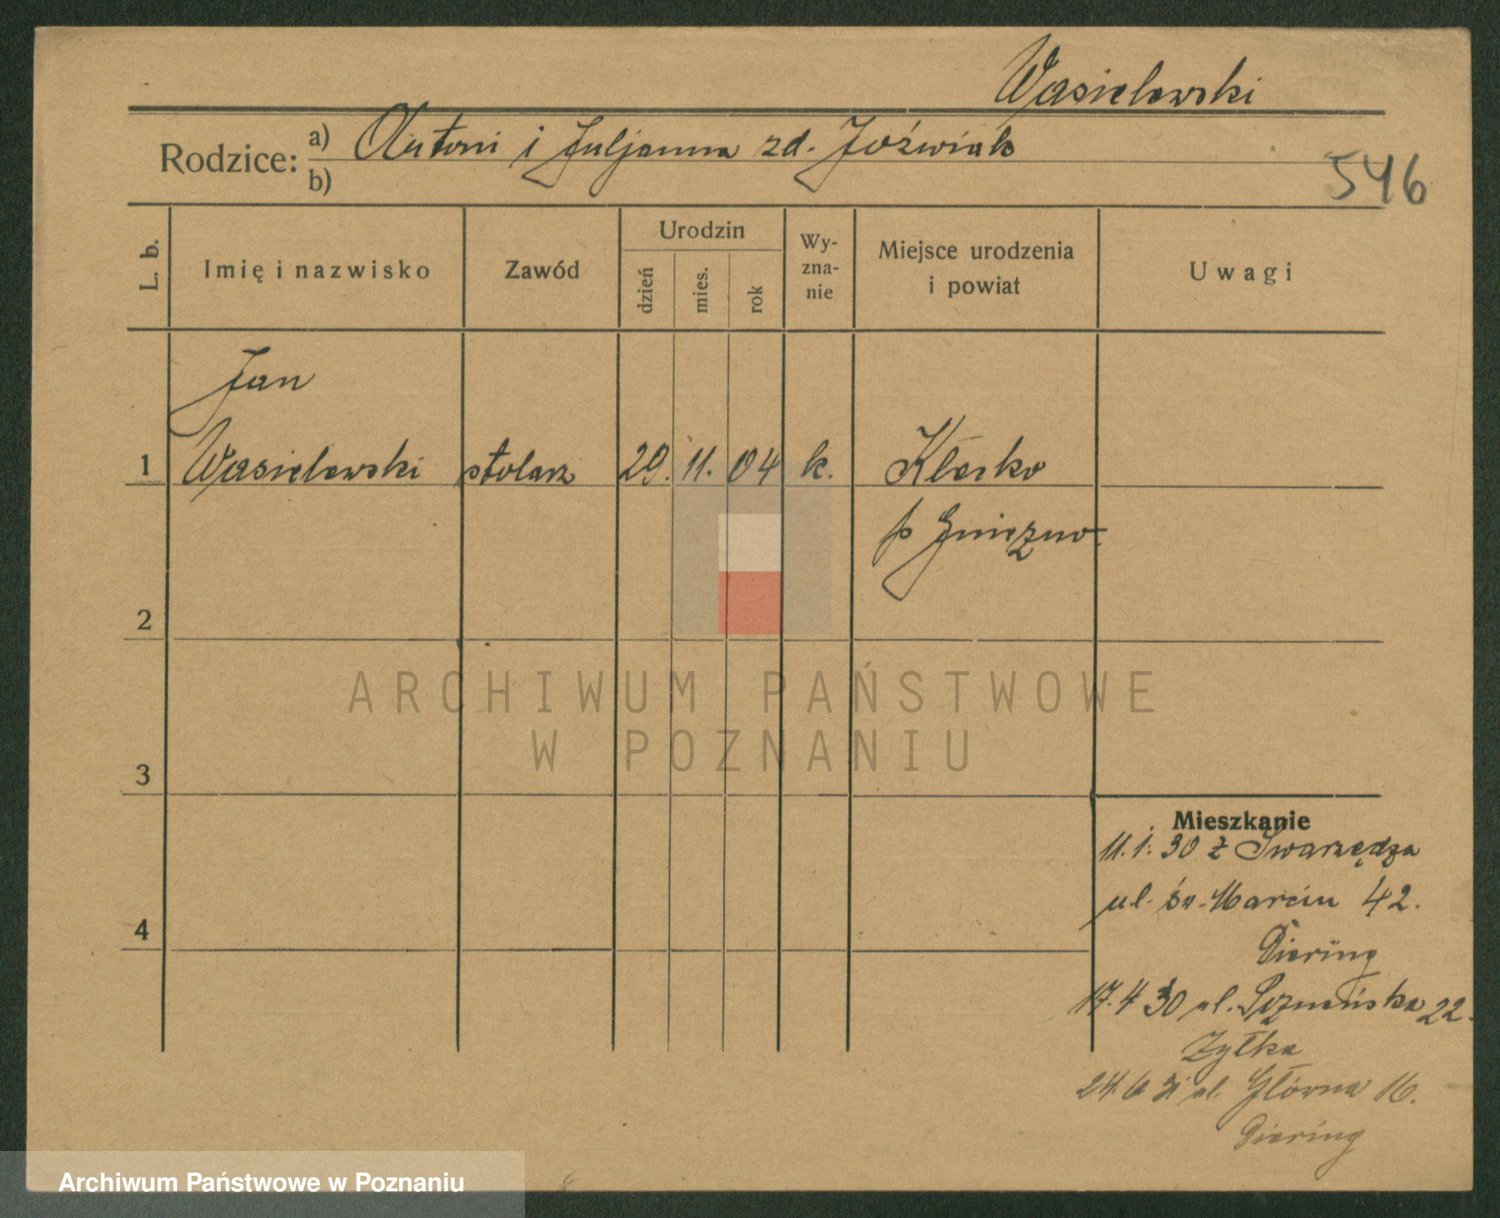 Wasielewski
Rodzice: a) Antoni i Juljanna zd. Jóźwiak
b)
546
L. b.
Imię i nazwisko
Zawód
Urodzin
dzień
mies.
rok
Wy-
zna-
nie
Miejsce urodzenia
i powiat
Uwagi
Jan
1 Wasielewski stolarz 29. 11. 04 k. Kłecko
p Gniezno.
2
3
4
ARCHIWUM PAŃSTWOWE
W POZNANIU
Mieszkanie
11. 1. 30 z Swarzędza
ul. św. Marcin 42.
Diering
17. 4 30 ul. Poznańska 22.
Zyłka
24. 6 31 ul. Główna 16.
Diering
Archiwum Państwowe w Poznaniu